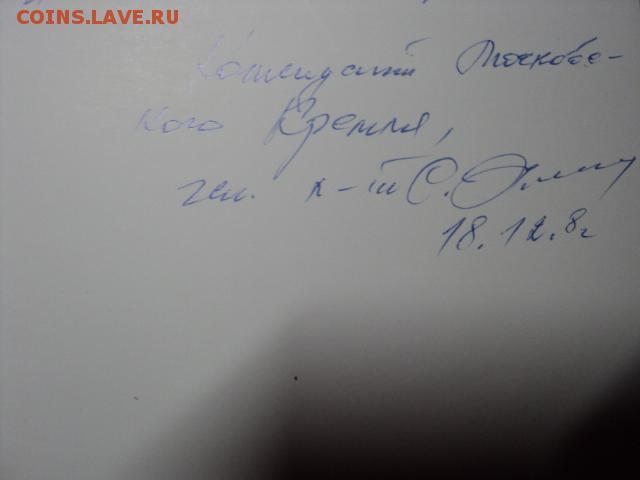 COINS.LAVE.RU
Комендант Московс-
кого Кремля,
ген. л-т С.
18.12.8г